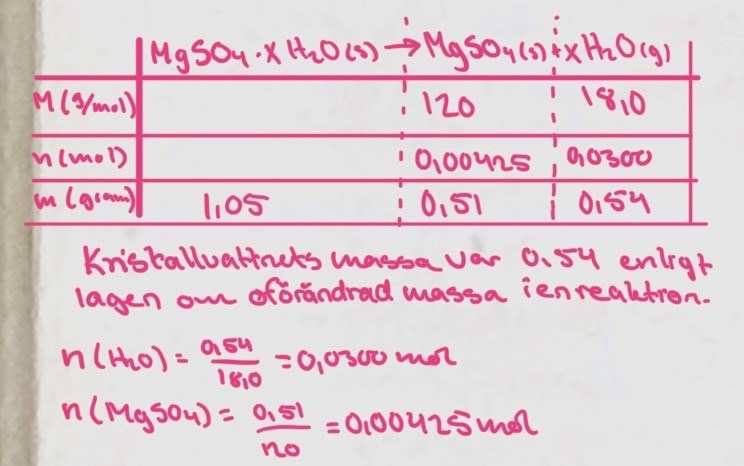 MgSO4·XH2O(s) → MgSO4(s) + xH2O(g)
M(g/mol) 120 18,0
n(mol) 0,00425 0,0300
m (gram) 1,05 0,51 0,54
Kristallvattnets massa var 0,54 enligt
lagen om oförändrad massa i en reaktion.
n(H2O) = 0,54/18,0 = 0,0300 mol
n(MgSO4) = 0,51/120 = 0,00425 mol